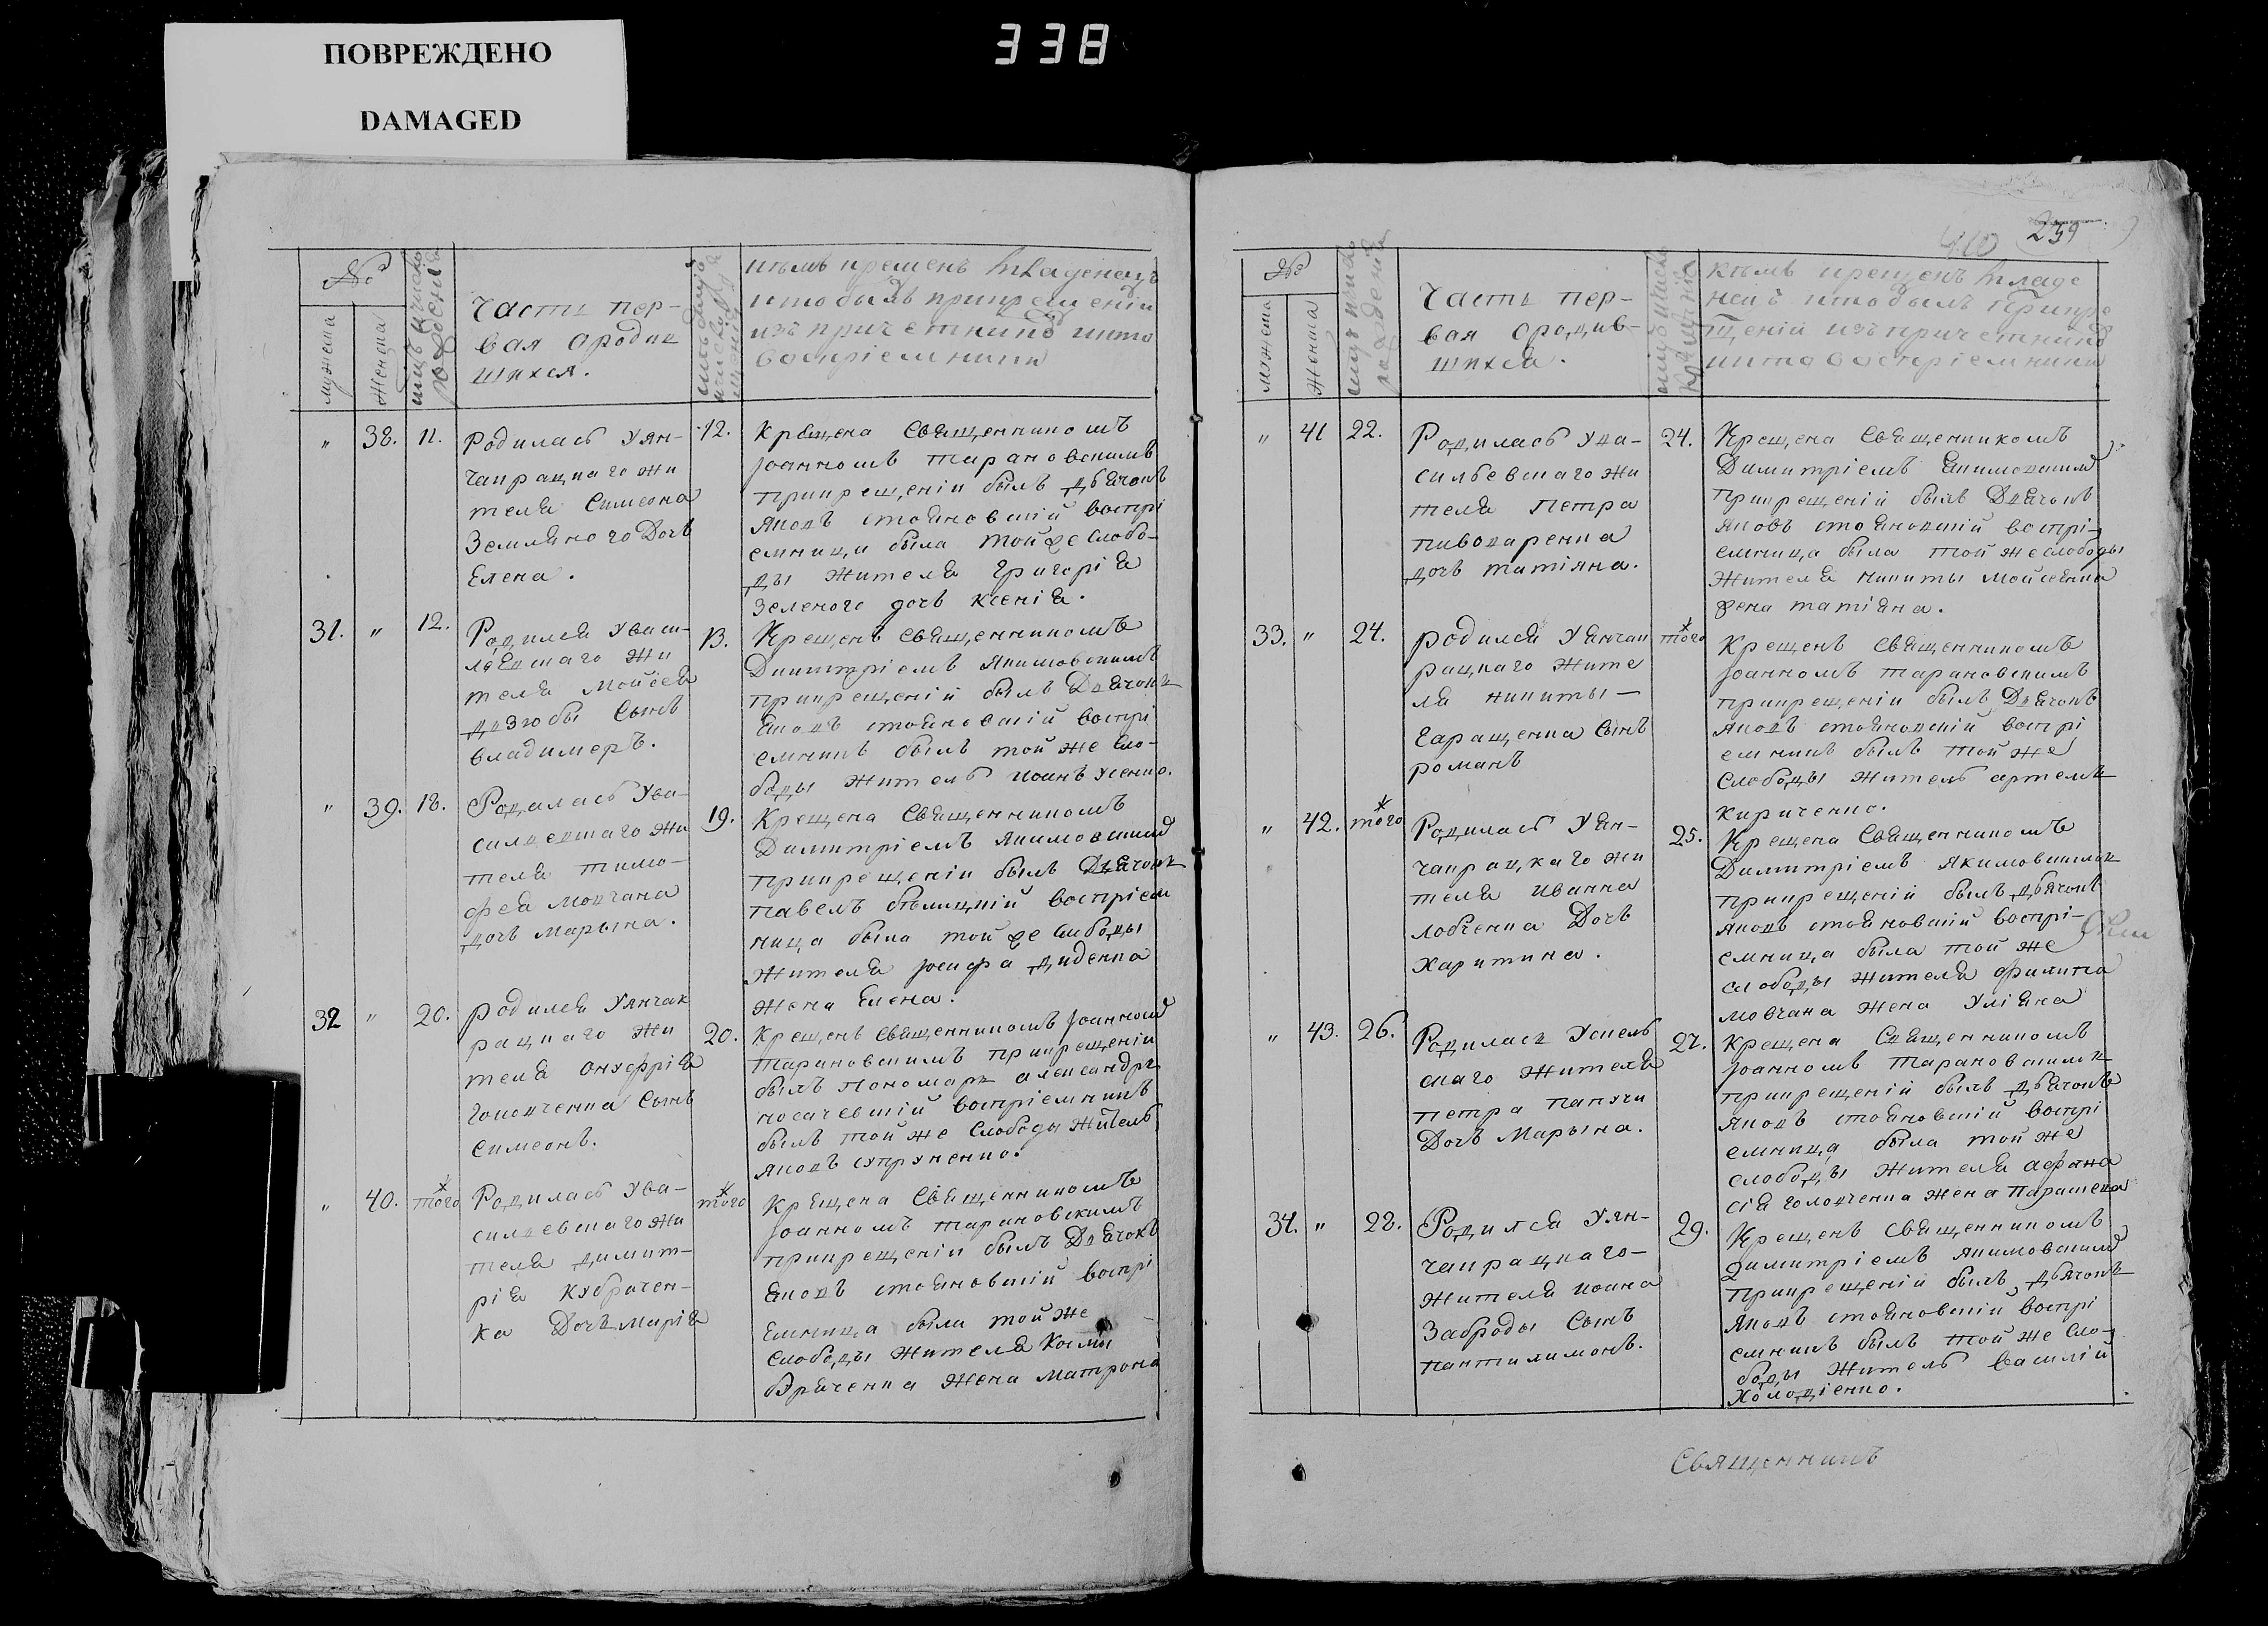 ПОВРЕЖДЕНО
DAMAGED
338
№
мужеска
Женска
Часть пер-
вая ородив
шихся.
кѣмъ крещенъ младенецъ
и кто былъ при крещеніи
изъ причетниковъ и кто
воспріемники
" 38. 11.
Родилась Уян-
чакрацкаго жи
теля Симеона
Землянаго Дочь
Елена.
12.
Крещена Священникомъ
Іоанномъ Тарановскимъ
при крещеніи былъ дьячокъ
Яковъ стояновскій воспрі
емница была той же слобо-
ды жителя Григорія
Зеленого дочь Ксенія.
31. " 12.
Родился Уваси-
левскаго жи
теля Мойсея
дзюбы Сынъ
Владимеръ.
13.
Крещенъ Священникомъ
Димитріемъ Якимовскимъ
при крещеніи былъ Дьячокъ
Яковъ стояновскій воспрі
емникъ былъ той же сло-
боды житель Иоанъ Усенко.
" 39. 18.
Родилась Ува-
силевскаго жи
теля тимо-
фея Мовчана
дочь Марына.
19.
Крещена Священникомъ
Димитріемъ Якимовскимъ
при крещеніи былъ Дьячокъ
Павелъ бѣлицкій воспріем
ница была той же слободы
жителя Іосифа диденка
жена Елена.
32 " 20.
родился Уянчак
рацкаго жи
теля онуфрія
головченка Сынъ
Симеонъ.
20.
Крещенъ Священникомъ Іоанномъ
Тарановскимъ при крещеніи
былъ пономарь александръ
носачевскій воспріемникъ
былъ той же Слободы житель
Яковъ супруненко.
" 40. того
Родилась Ува-
силевскаго жи
теля димит-
рія кубрачен-
ка Дочь Марія
того
Крещена Священникомъ
Іоанномъ Тарановскимъ
при крещеніи былъ Дьячокъ
Яковъ стояновскій воспрі
емница была той же
слободы жителя Косми
жена Матрона
239
№
мужеска
Женска
Часть пер-
вая ородив-
шихся.
кѣмъ крещенъ младе
нецъ и кто былъ при кре
щеніи изъ причетниковъ
и кто воспріемники
" 41 22.
Родилась Ува-
сильевскаго жи
теля Петра
пивоваренка
дочь татіяна.
24.
Крещена Священникомъ
Димитріемъ Якимовскимъ
при крещеній былъ Дьячокъ
Яковъ стояновскій воспрі-
емница была той же слободы
жителя никиты Мойсеенка
жена татіяна.
33. " 24.
родился Уянчак
рацкаго жите
ля никиты -
Гаращенка Сынъ
романъ
того
Крещенъ Священникомъ
Іоанномъ Тарановскимъ
при крещеніи былъ Дьячокъ
Яковъ стояновскій воспрі
емникъ былъ той же
Слободы житель артемъ
Кириченко.
" 42. того
Родилась Уян-
чакрацкаго жи
теля Иванна
лобченка Дочь
Харитина.
25.
Крещена Священникомъ
Димитріемъ Якимовскимъ
при крещеній былъ дьячокъ
Яковъ стояновскій воспрі-
емница была той же
слободы жителя филипа
мовчана жена Уліяна
" 43. 26.
Родилась Усель
скаго жителя
петра папучи
Дочь Марына.
27.
Крещена Священникомъ
Іоанномъ Тарановскимъ
при крещеній былъ дьячокъ
Яковъ стояновскій воспрі
емница была той же
слободы жителя афана
сія головченка жена Параскева
34. " 28.
Родился Уян-
чакрацкаго -
жителя иоана
Заброды Сынъ
пантилимонъ.
29.
Крещенъ Священникомъ
Димитріемъ Якимовскимъ
при крещеній былъ дьячокъ
Яковъ стояновскій воспрі
емникъ былъ той же сло-
боды житель Василій
Холодіенко.
Священникъ